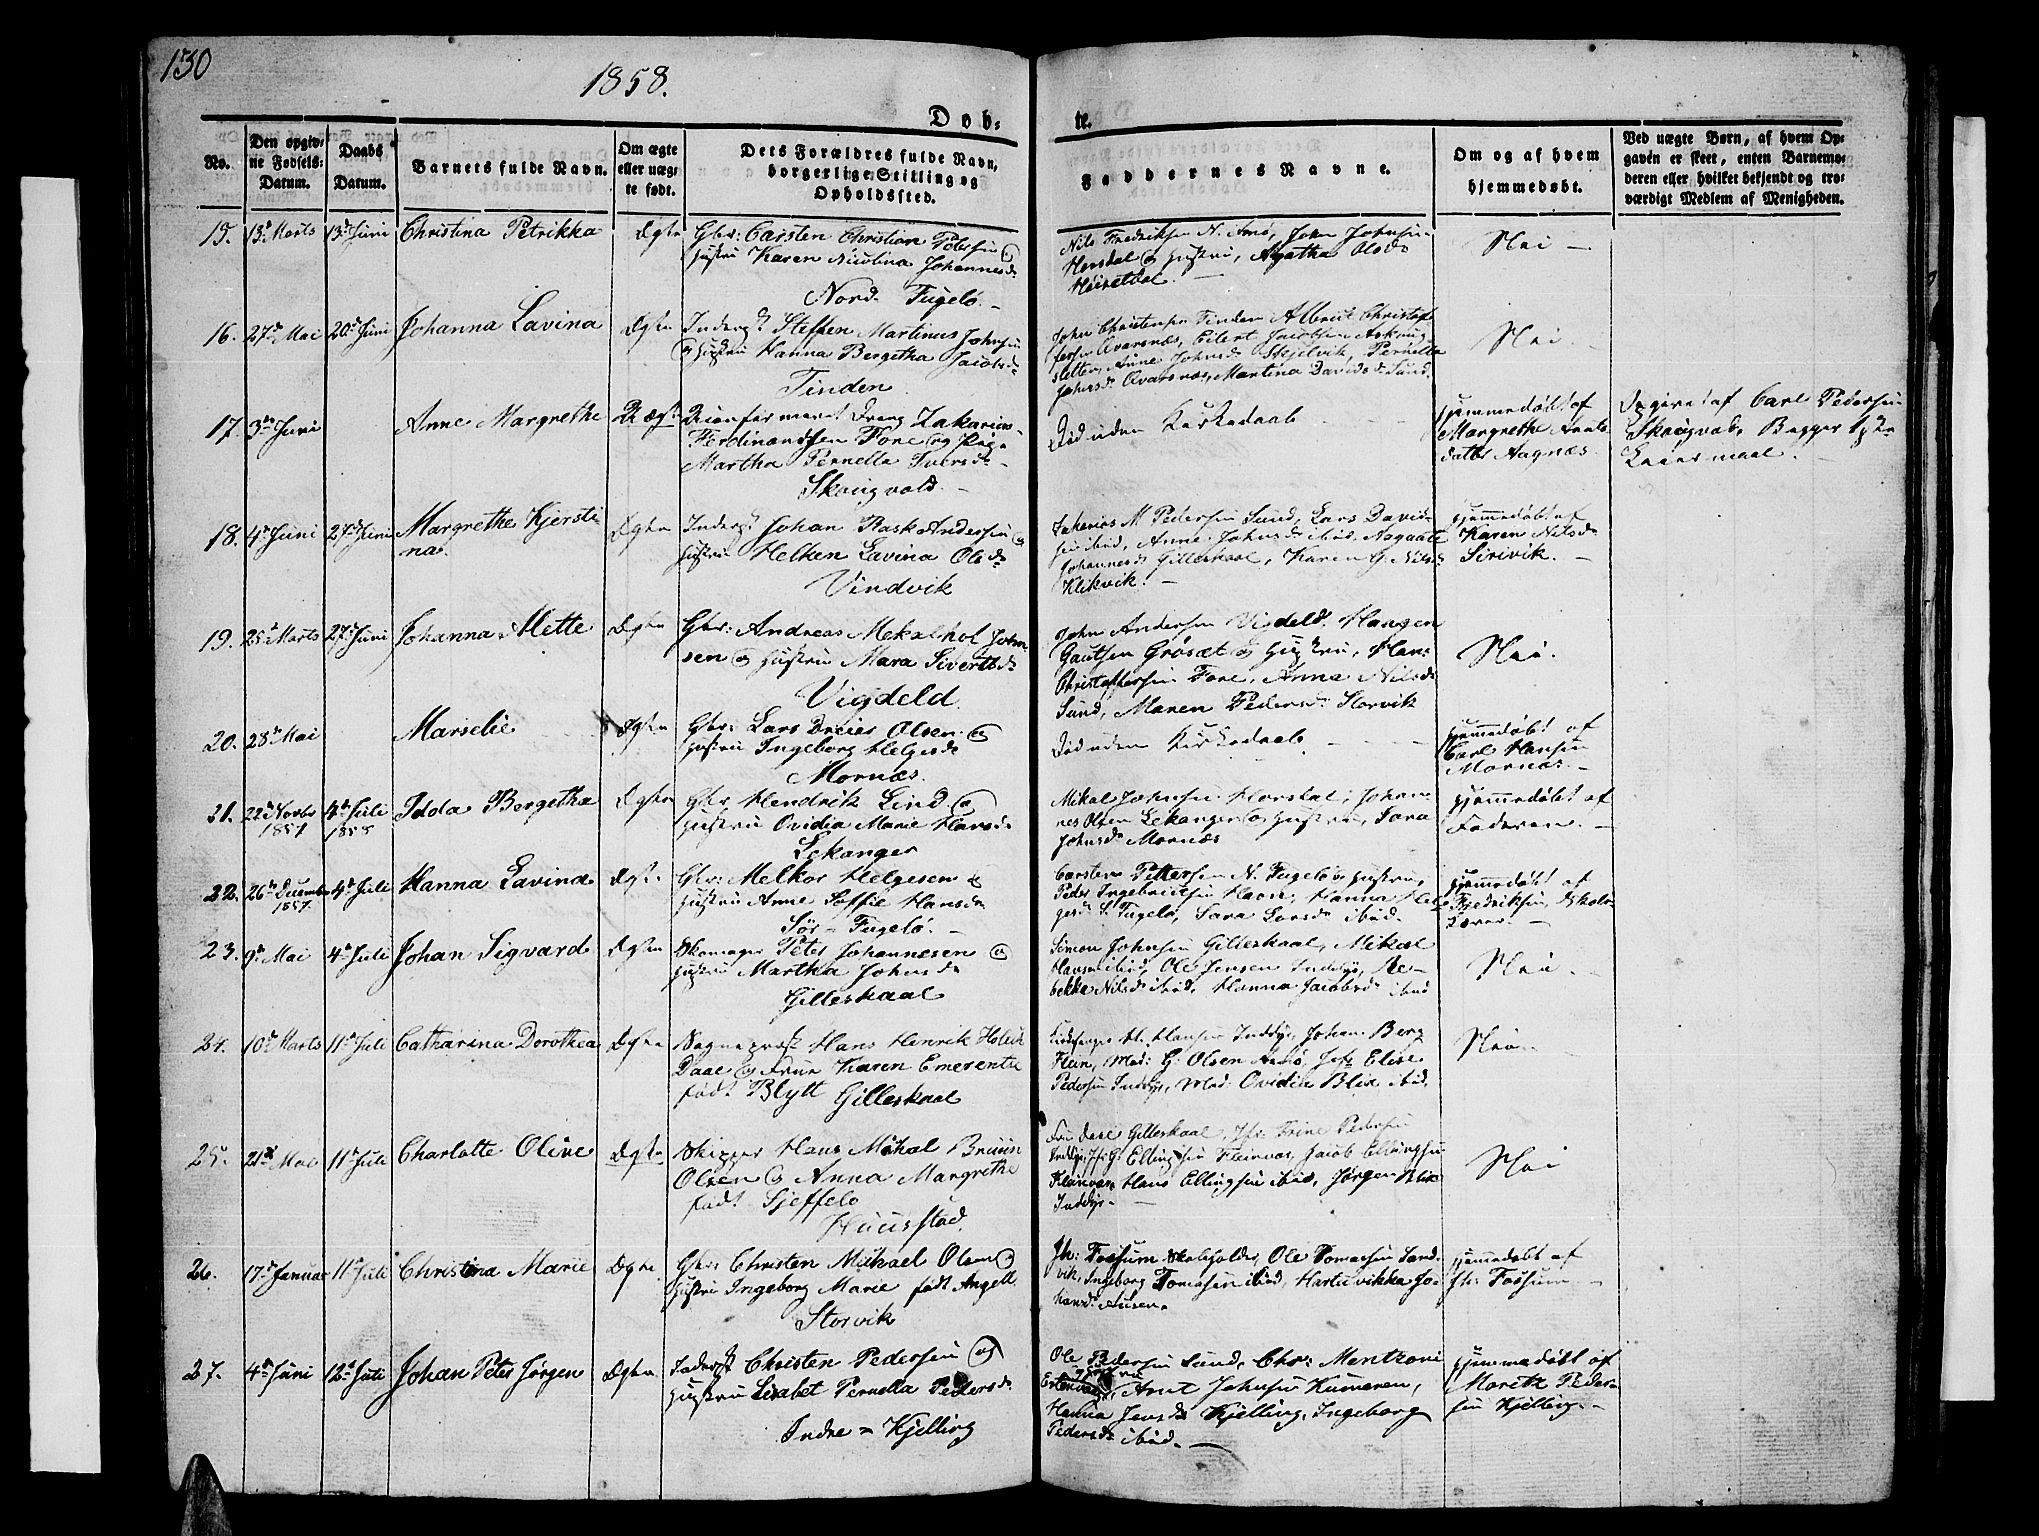 130
1858.
Døb-
te.
No.
Den opgiv-
ne Fødsels-
Datum.
Daabs
Datum.
Barnets fulde Navn.
Om ægte
eller uæg-
te født.
Dets Forældres fulde Navn,
borgerlige Stilling og
Opholdssted.
Faddernes Navne.
Om og af hvem
hjemmedøbt.
Ved uægte Børn, af hvem Op-
gaven er skeet, enten Barnemo-
deren eller hvilket bekjendt og tro-
værdigt Medlem af Menigheden.
15. 13de Marts 13de Juni Christina Petrikka Ægte Gbr: Carsten Christian Petersen og
Hustru Karen Nicolina Johannesd.
Nord-Fugelø.
Nils Fredriksen N. Arnø, John Johnsen
Horsdal og Hustru, Agatha Olsd.
Høiseldal.
Nei
16. 27de Mai 20de Juni Johanna Lavina Ægte Inderst Steffen Martinus Johnsen
og Hustru Hanna Bergetha Jacobsd.
Tinden
John Christensen Tinden Albrit Christof-
fersen Qvarsnæs, Eilert Jacobsen
Anne Johnsd. Skjelvik, Pernella
Johnsd. Qvarsnæs, Martina Davidsd. Sund.
Nei.
17. 3de Juni Anne Margrethe Uægte Dreng Zakarias
Ferdinandsen Fore og Pige
Martha Pernella Iversd.
Skougvold.
Død uden Kirkedaab
hjemmedøbt af
Margrethe Arnts
datter Aagnæs.
Opgivet af Carl Pedersen
Skougvold. Begges 1ste
Leiermaal.
18. 4de Juni 27de Juni Margrethe Kjersti-
na. Ægte Inderst Johan Rask Andersen og
Hustru Helken Lavina Olsd.
Vindvik
Zakarias M Pedersen Sund, Lars David-
sen ibid, Anne Johnsd. ibid. Aagaate
Johannesd. Gilleskaal, Karen G. Nilsd.
Klikvik.
hjemmedøbt af
Karen Nilsd.
Sirivik.
19. 25de Marts 27de Juni Johanna Mette Ægte Gbr: Andreas Mekalhol John-
sen og Hustru Mara Sivertsd.
Vigdeld.
John Andersen Vigdeld. Haagen
Gautsen Grøsæt og Hustru, Hans
Christoffersen Fore, Anna Nilsd.
Sund, Maren Pedersd. Storvik
Nei.
20. 28de Mai Marselie Ægte Gbr: Lars Dreier Olsen og
Hustru Ingeborg Helgesd.
Mornæs.
Død uden Kirkedaab
hjemmedøbt af
Carl Hansen
Mornæs.
21. 22de Novbr 4de Juli Idda Bergetha Ægte Gbr Hendrik Lind og
1857 1858 Hustru Ovidia Marie Hansd.
Lekanger
Mikal Johnsen Horsdal, Johan-
nes Olsen Lekanger og Hustru, Sara
Johnsd. Mornæs
hjemmedøbt af
Faderen.
22. 26de Decembr 4de Juli Hanna Lavina Ægte Gbr: Melkor Helgesen og
1857. Hustru Anne Soffie Hansd.
Sør-Fugelø.
Carsten Pettersen N. Fugelø og Hustru,
Peder Ingebrictsen Haaen, Hanna Hel-
gesd. S. Fugelø, Sara Larsd. ibid.
hjemmedøbt af
Fredriksen, Skole-
lærer.
23. 9de Mai 4de Juli Johan Sigvard Ægte Skomager Peter Johannesen og
Hustru Martha Johnsd.
Gilleskaal
Simon Johnsen Gilleskaal, Mikal
Hansen ibid, Ole Jensen Inddyr, Re-
bekka Nilsd. ibid, Hanna Jacobsd. ibid
Nei.
24. 10de Marts 11te Juli Catharina Dorothea Ægte Sognepræst Hans Henrik Holck
Daae og Frue Karen Emerentse
født Blytt Gilleskaal
Kirkesanger H. Hansen Inddyr, Johan Berg
Flein, Mad: G. Olsen Arnø, Jfr. Elise
Pedersen Inddyr, Mad: Ovidia Blix ibid.
Nei.
25. 21de Mai 11te Juli Charlotte Olive Ægte Skipper Hans Mikal Bruun
Olsen og Anna Margrethe
født Sjeffelo
Huusstad.
Fru Daae Gilleskaal, Jfr. Trine Pedersen
Inddyr, Jfr G. Ellingsen Fleinvær, Jacob Ellingsen
Fleinvær, Hans Ellingsen ibid, Jørgen Blix
Inddyr.
Nei
26. 17de Januar 11te Juli Christina Marie Ægte Gbr: Christen Mikael Olsen og
Hustru Ingeborg Marie født Angell
Storvik
Jh: Fossum Skoleholder, Ole Tomæsen Sand-
vik, Ingeborg Tomæsen ibid, Hartvikka Jo-
hansd. Ausen.
hjemmedøbt af
Jh: Fossum.
27. 4de Juni 12te Juli Johan Peter Jørgen Ægte Inderst Christen Pedersen og
Hustru Lisabet Pernella Pedersd.
Indre-Kjelling
Ole Pedersen Sund, Chr: Mentzoni
Hustru, Arnt Johnsen Humeren,
Hanna Jensd. Kjelling, Ingeborg
Pedersd. ibid.
hjemmedøbt af
Morits Peder-
sen Kjelling.